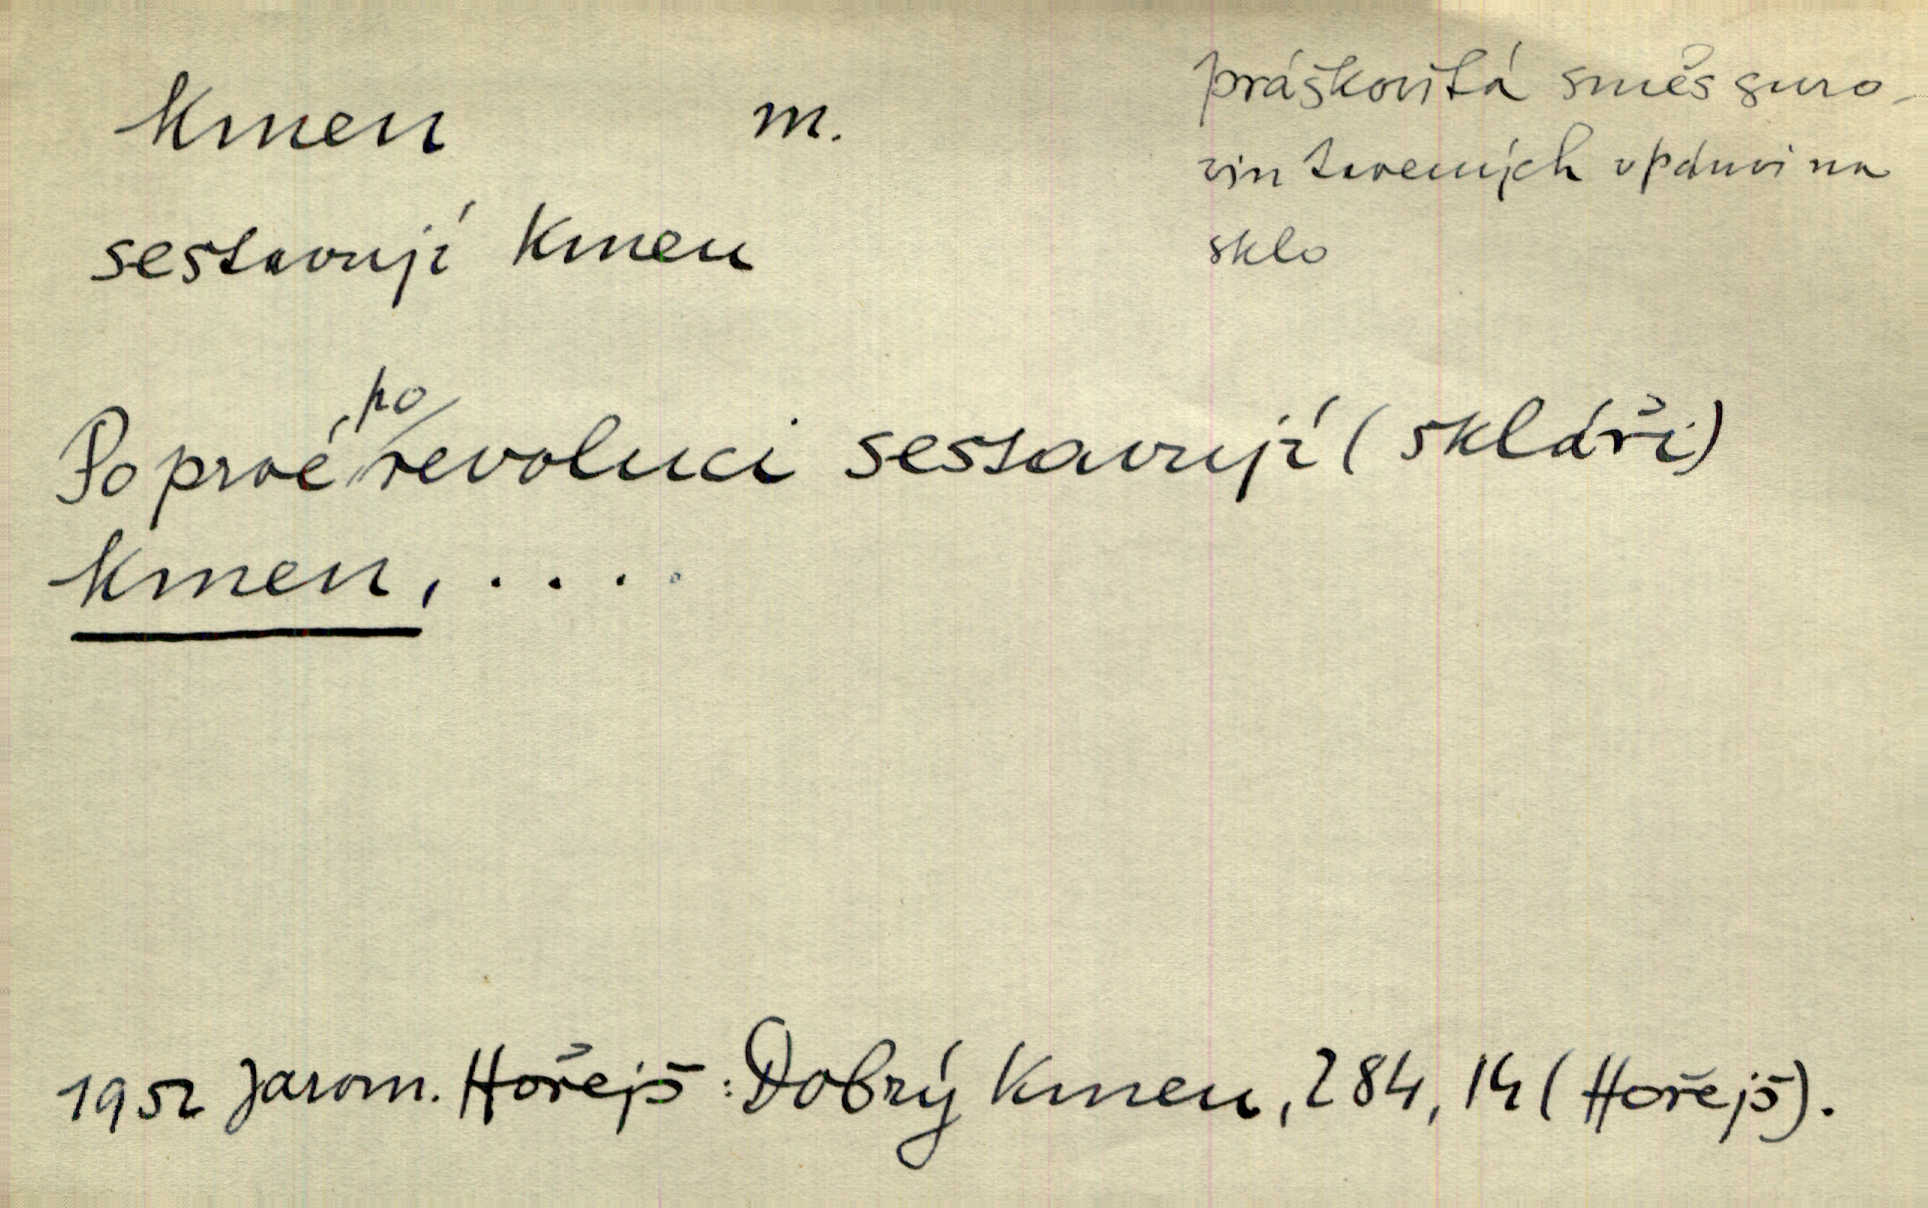 kmen m.
práškovitá směs suro-
vin tavených v pánvi na
sklo
sestavují kmen
Poprvé po revoluci sestavují (skláři)
kmen, . . . .
1952 Jarom. Hořejš: Dobrý kmen, 284, 14 (Hořejš).